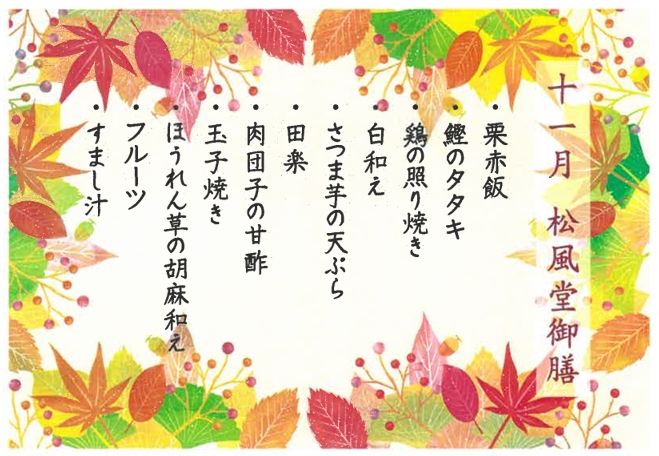 十一月 松風堂御膳
・栗赤飯
・鰹のタタキ
・鶏の照り焼き
・白和え
・さつま芋の天ぷら
・田楽
・肉団子の甘酢
・玉子焼き
・ほうれん草の胡麻和え
・フルーツ
・すまし汁